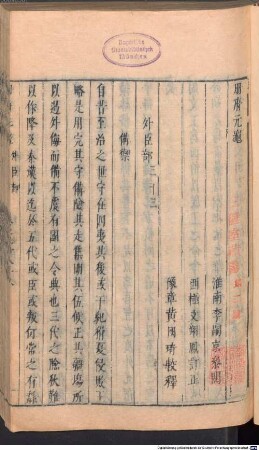 冊府元龜
淮南李嗣京參閱
西極文翔鳳訂正
豫章黃國琦較釋
外臣部 三十三
備禦
自昔至治之世守在四夷其後或干紀猾夏侵敗王
略是用完其守備險其走集固其伍候正其疆場所
以遏外侮而備不虞有國之令典也三代之際狄難
以作降及秦漢以迄於五代或臣或叛何常之有雖
Bayerische
Staatsbibliothek
München